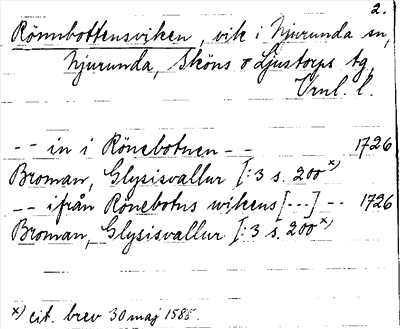 2.
Rönnbottensviken, vik i Njurunda sn,
Njurunda, Sköns o Ljustorps tg,
Vrnl. l.
-- in i Rönebotnen -- 1726
Broman, Glysisvallur [: 3 s. 200 x)
-- ifrån Rönebotns wikens [---] -- 1726
Broman, Glysisvallur [: 3 s. 200 x)
x) cit. brev 30 maj 1585.